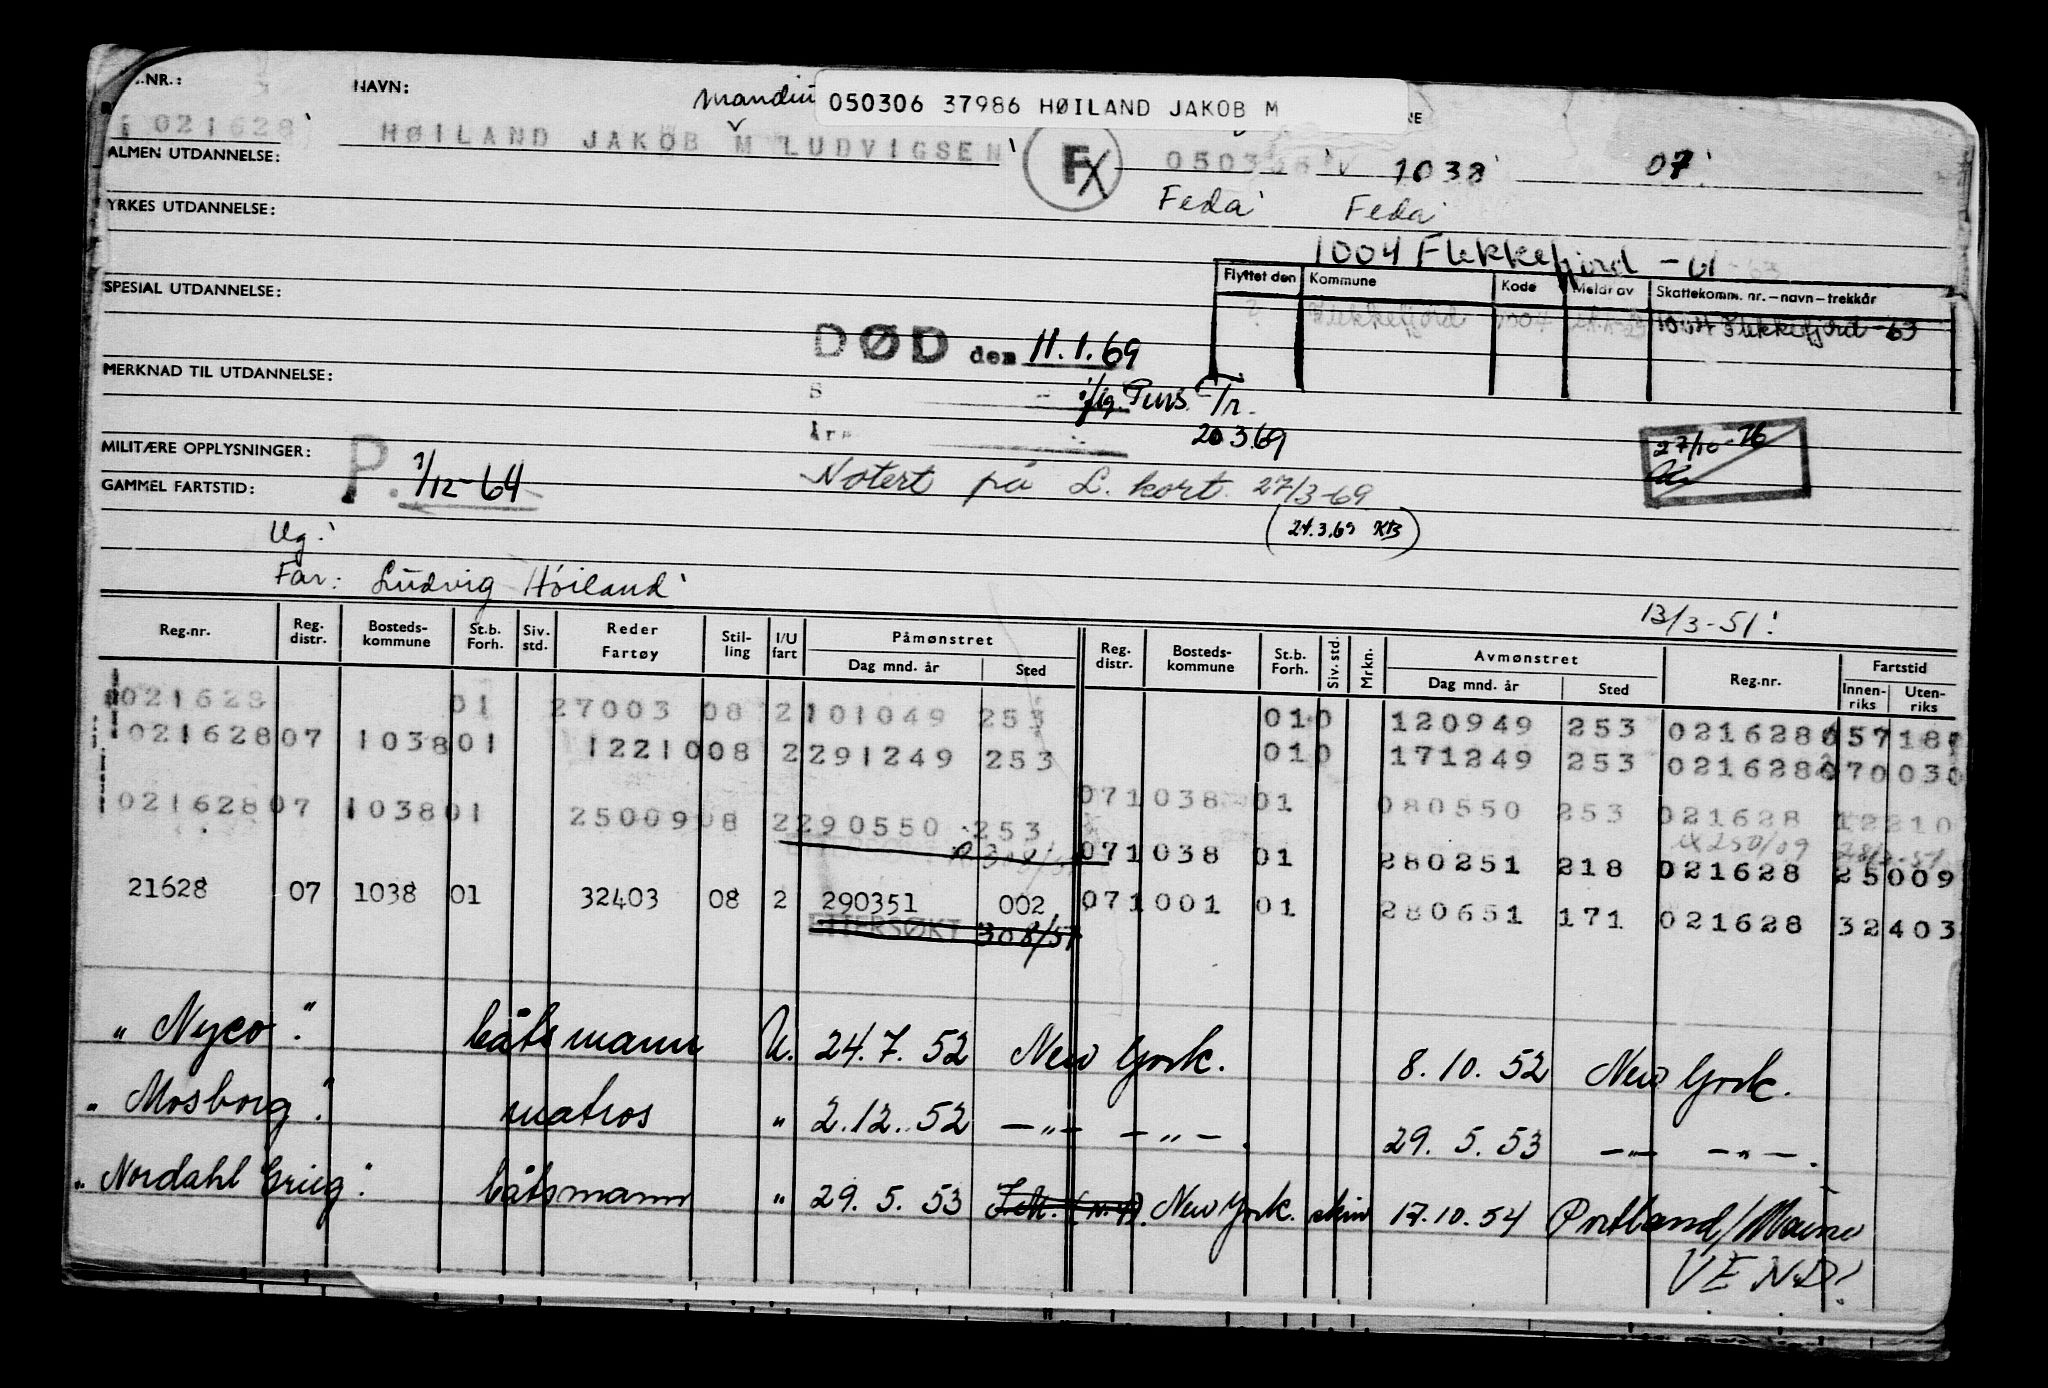 .NR.: NAVN: 050306 37986 HØILAND JAKOB M
021628 HØILAND JAKOB M LUDVIGSEN F 1038 07
ALMEN UTDANNELSE:
YRKES UTDANNELSE: Feda Feda
1004 Flekkefjord - 61 - 63
Flyttet den Kommune Kode Meldt av Skattekomm. nr.–navn–trekkår
SPESIAL UTDANNELSE: ? Flekkefjord 1004 1004 Flekkefjord - 63
DØD den 11.1.69
MERKNAD TIL UTDANNELSE:
20.3.69
MILITÆRE OPPLYSNINGER: P. 1/12-64 27/10-76
GAMMEL FARTSTID: Notert på L. kort. 27/3-69
(24.3.69 KB)
Ug.
Far: Ludvig Höiland
13/3-51!
Reg.nr. Reg. distr. Bosteds-kommune St.b. Forh. Siv. std. Reder Fartøy Stil-ling I/U fart Påmønstret Dag mnd. år Sted Reg. distr. Bosteds-kommune St.b. Forh. Siv. std. Mrkn. Avmønstret Dag mnd. år Sted Reg.nr. Fartstid Innen-riks Uten-riks
021628 01 27003 08 2 101049 253 010 120949 253 021628
021628 07 1038 01 12210 08 2 291249 253 010 171249 253 021628 070 030
071038 01 080550 253 021628 12210
021628 07 1038 01 25009 08 2 290550 253
071038 01 280251 218 021628 25009
21628 07 1038 01 32403 08 2 290351 002 071001 01 280651 171 021628 32403
ETTERSØKT 308/51
" Nyco " båtsmann U. 24.7.52 New York. 8.10.52 New York.
" Mosborg " matros " 2.12.52 —"— —"—. 29.5.53 —"— —"—.
" Nordahl Grieg " båtsmann " 29.5.53 New York. 17.10.54 Portland/Maine
VEND!